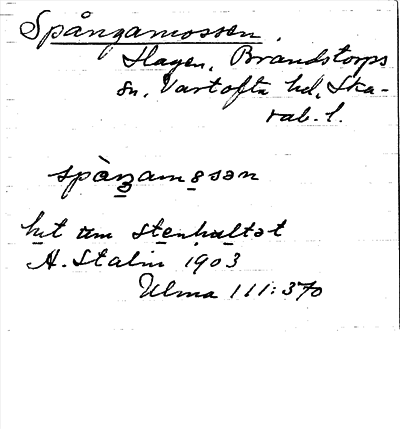 Spångamossen.
Hagen, Brandstorps
sn, Vartofta hd, Ska-
rab. l.
spàŋamosən
hit um stenhultət
A. Stalin 1903
Ulma 111:370